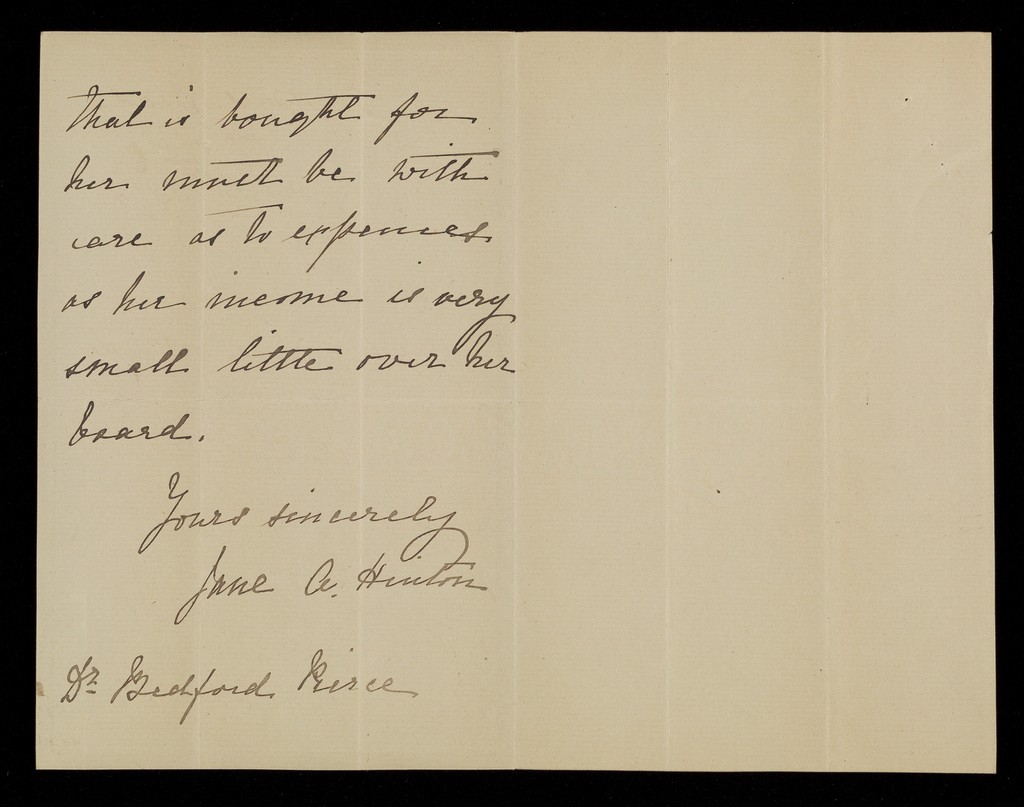 that is bought for
her must be with
care as to expenses
as her income is very
small little over her
board.
Yours sincerely
Jane A. Hinton
Dr. Bedford Pierce